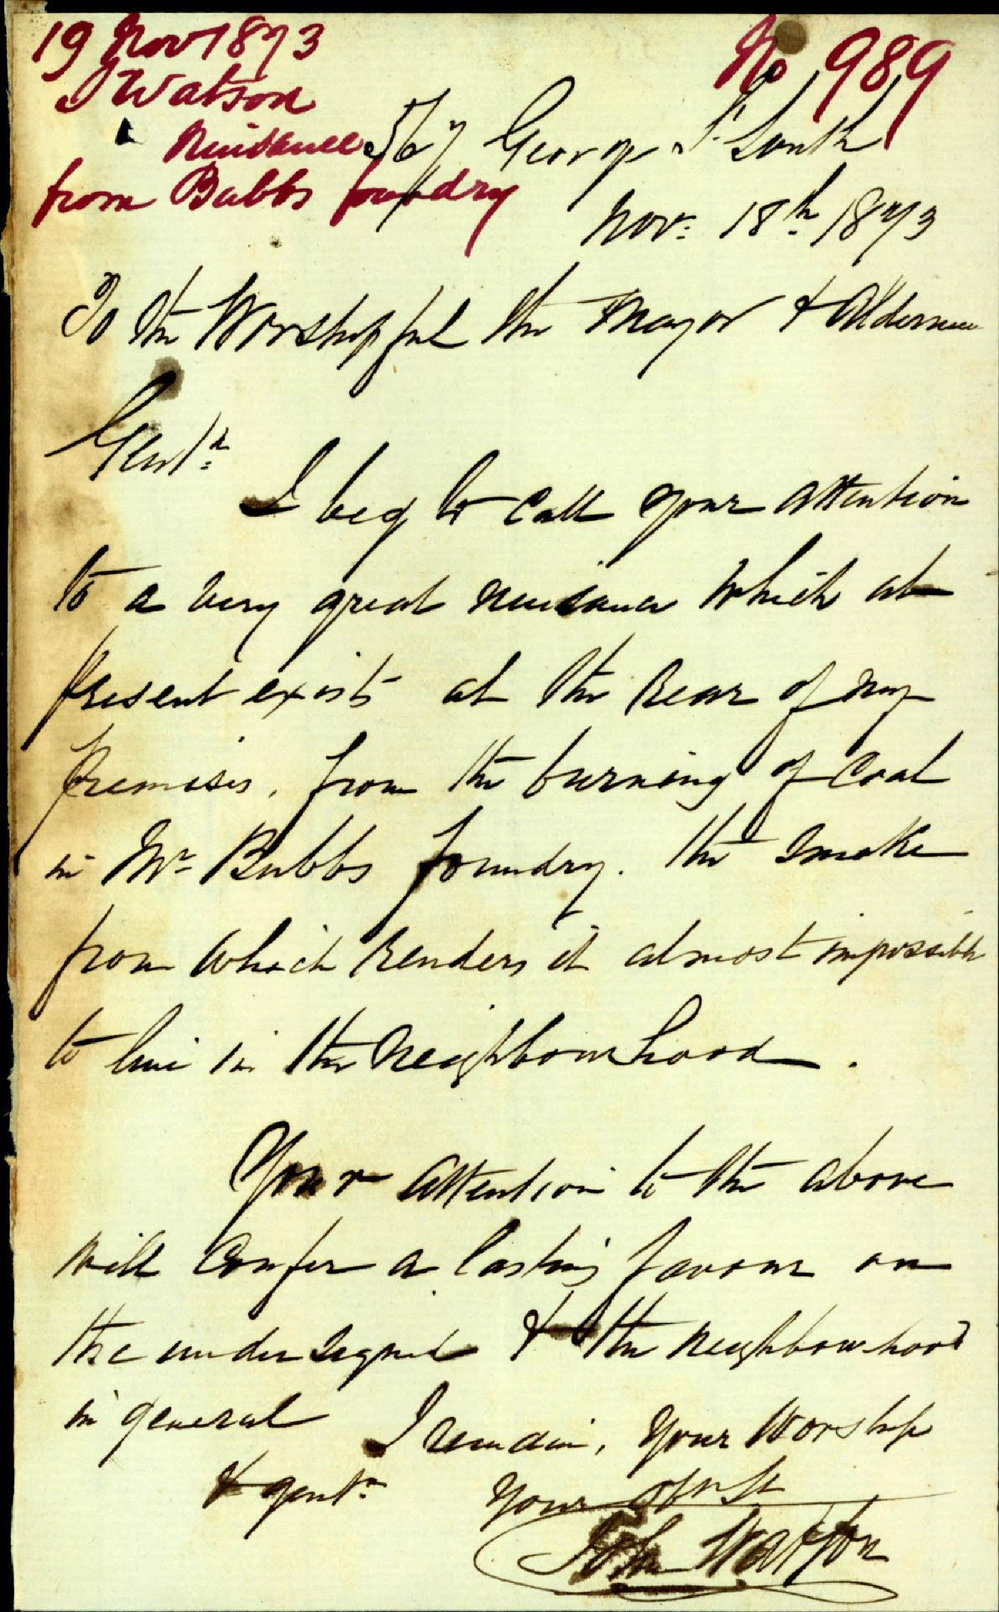 19 Nov 1873
J Watson
Nuisance
from Bubbs foundry
No 989
567 George St South
Nov: 18th 1873
To the Worshipful the Mayor & Aldermen
Gentn
I beg to call your attention
to a very great nuisance which at
present exists at the Rear of my
Premises, from the burning of Coal
in Mr Bubbs foundry. the smoke
from which Renders it almost impossible
to live in the Neighbourhood.
Your attention to the above
will confer a lasting favour on
the undersigned & the neighbourhood
in general I remain, Your Worship
& gentn Your
John Watson